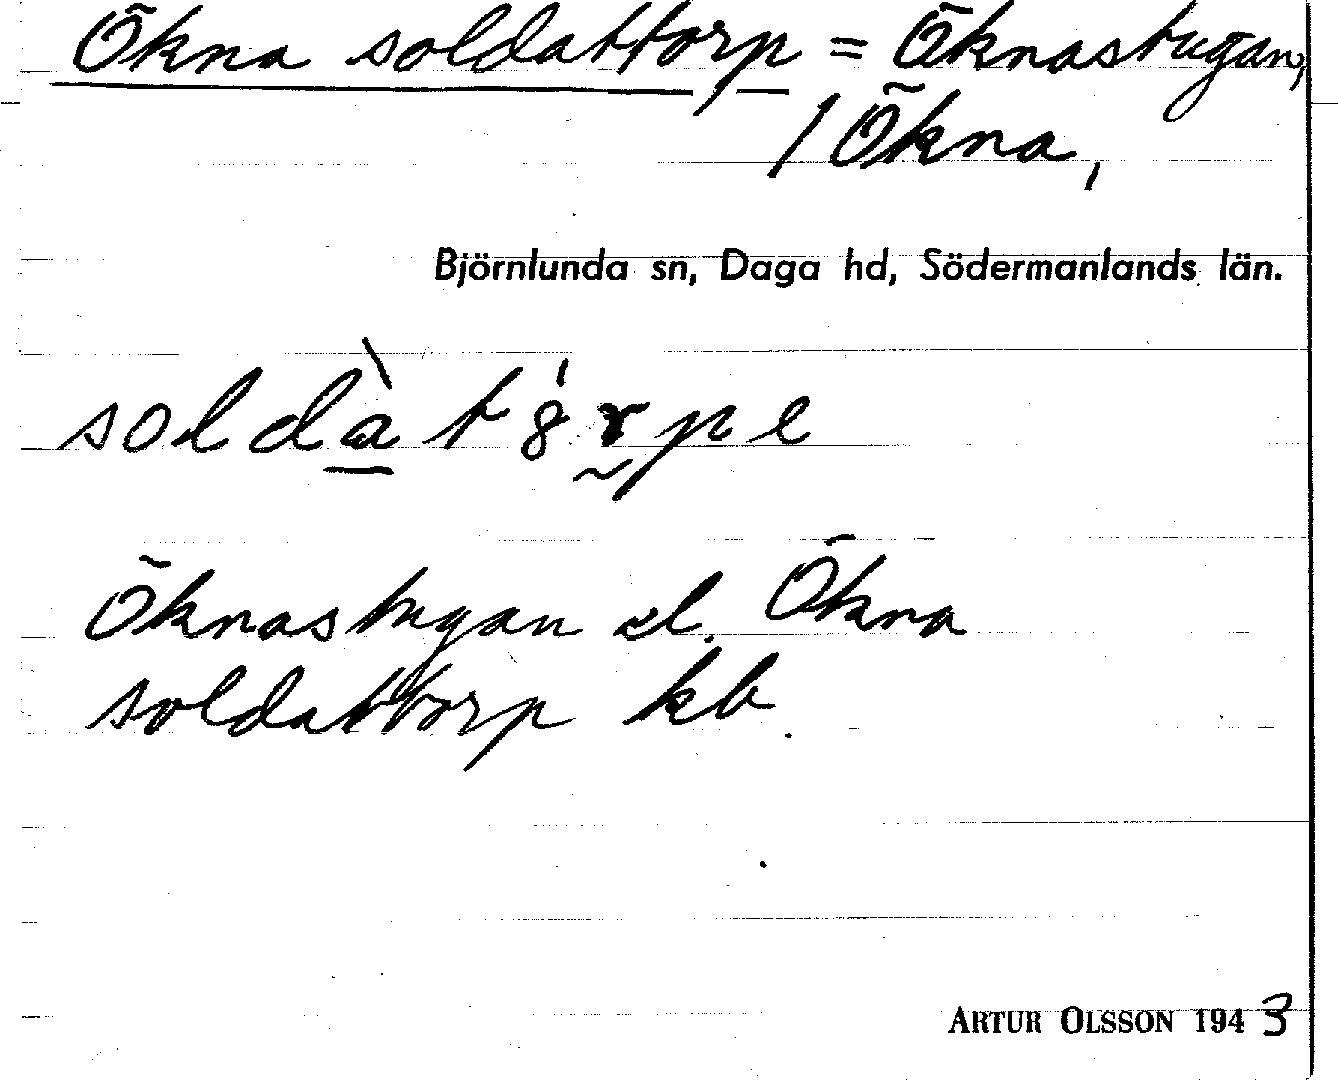 Ökna soldattorp = Öknastugan,
/Ökna,
Björnlunda sn, Daga hd, Södermanlands län.
soldàt8́rpe
Öknastugan el. Ökna
soldattorp kb.
ARTUR OLSSON 1943